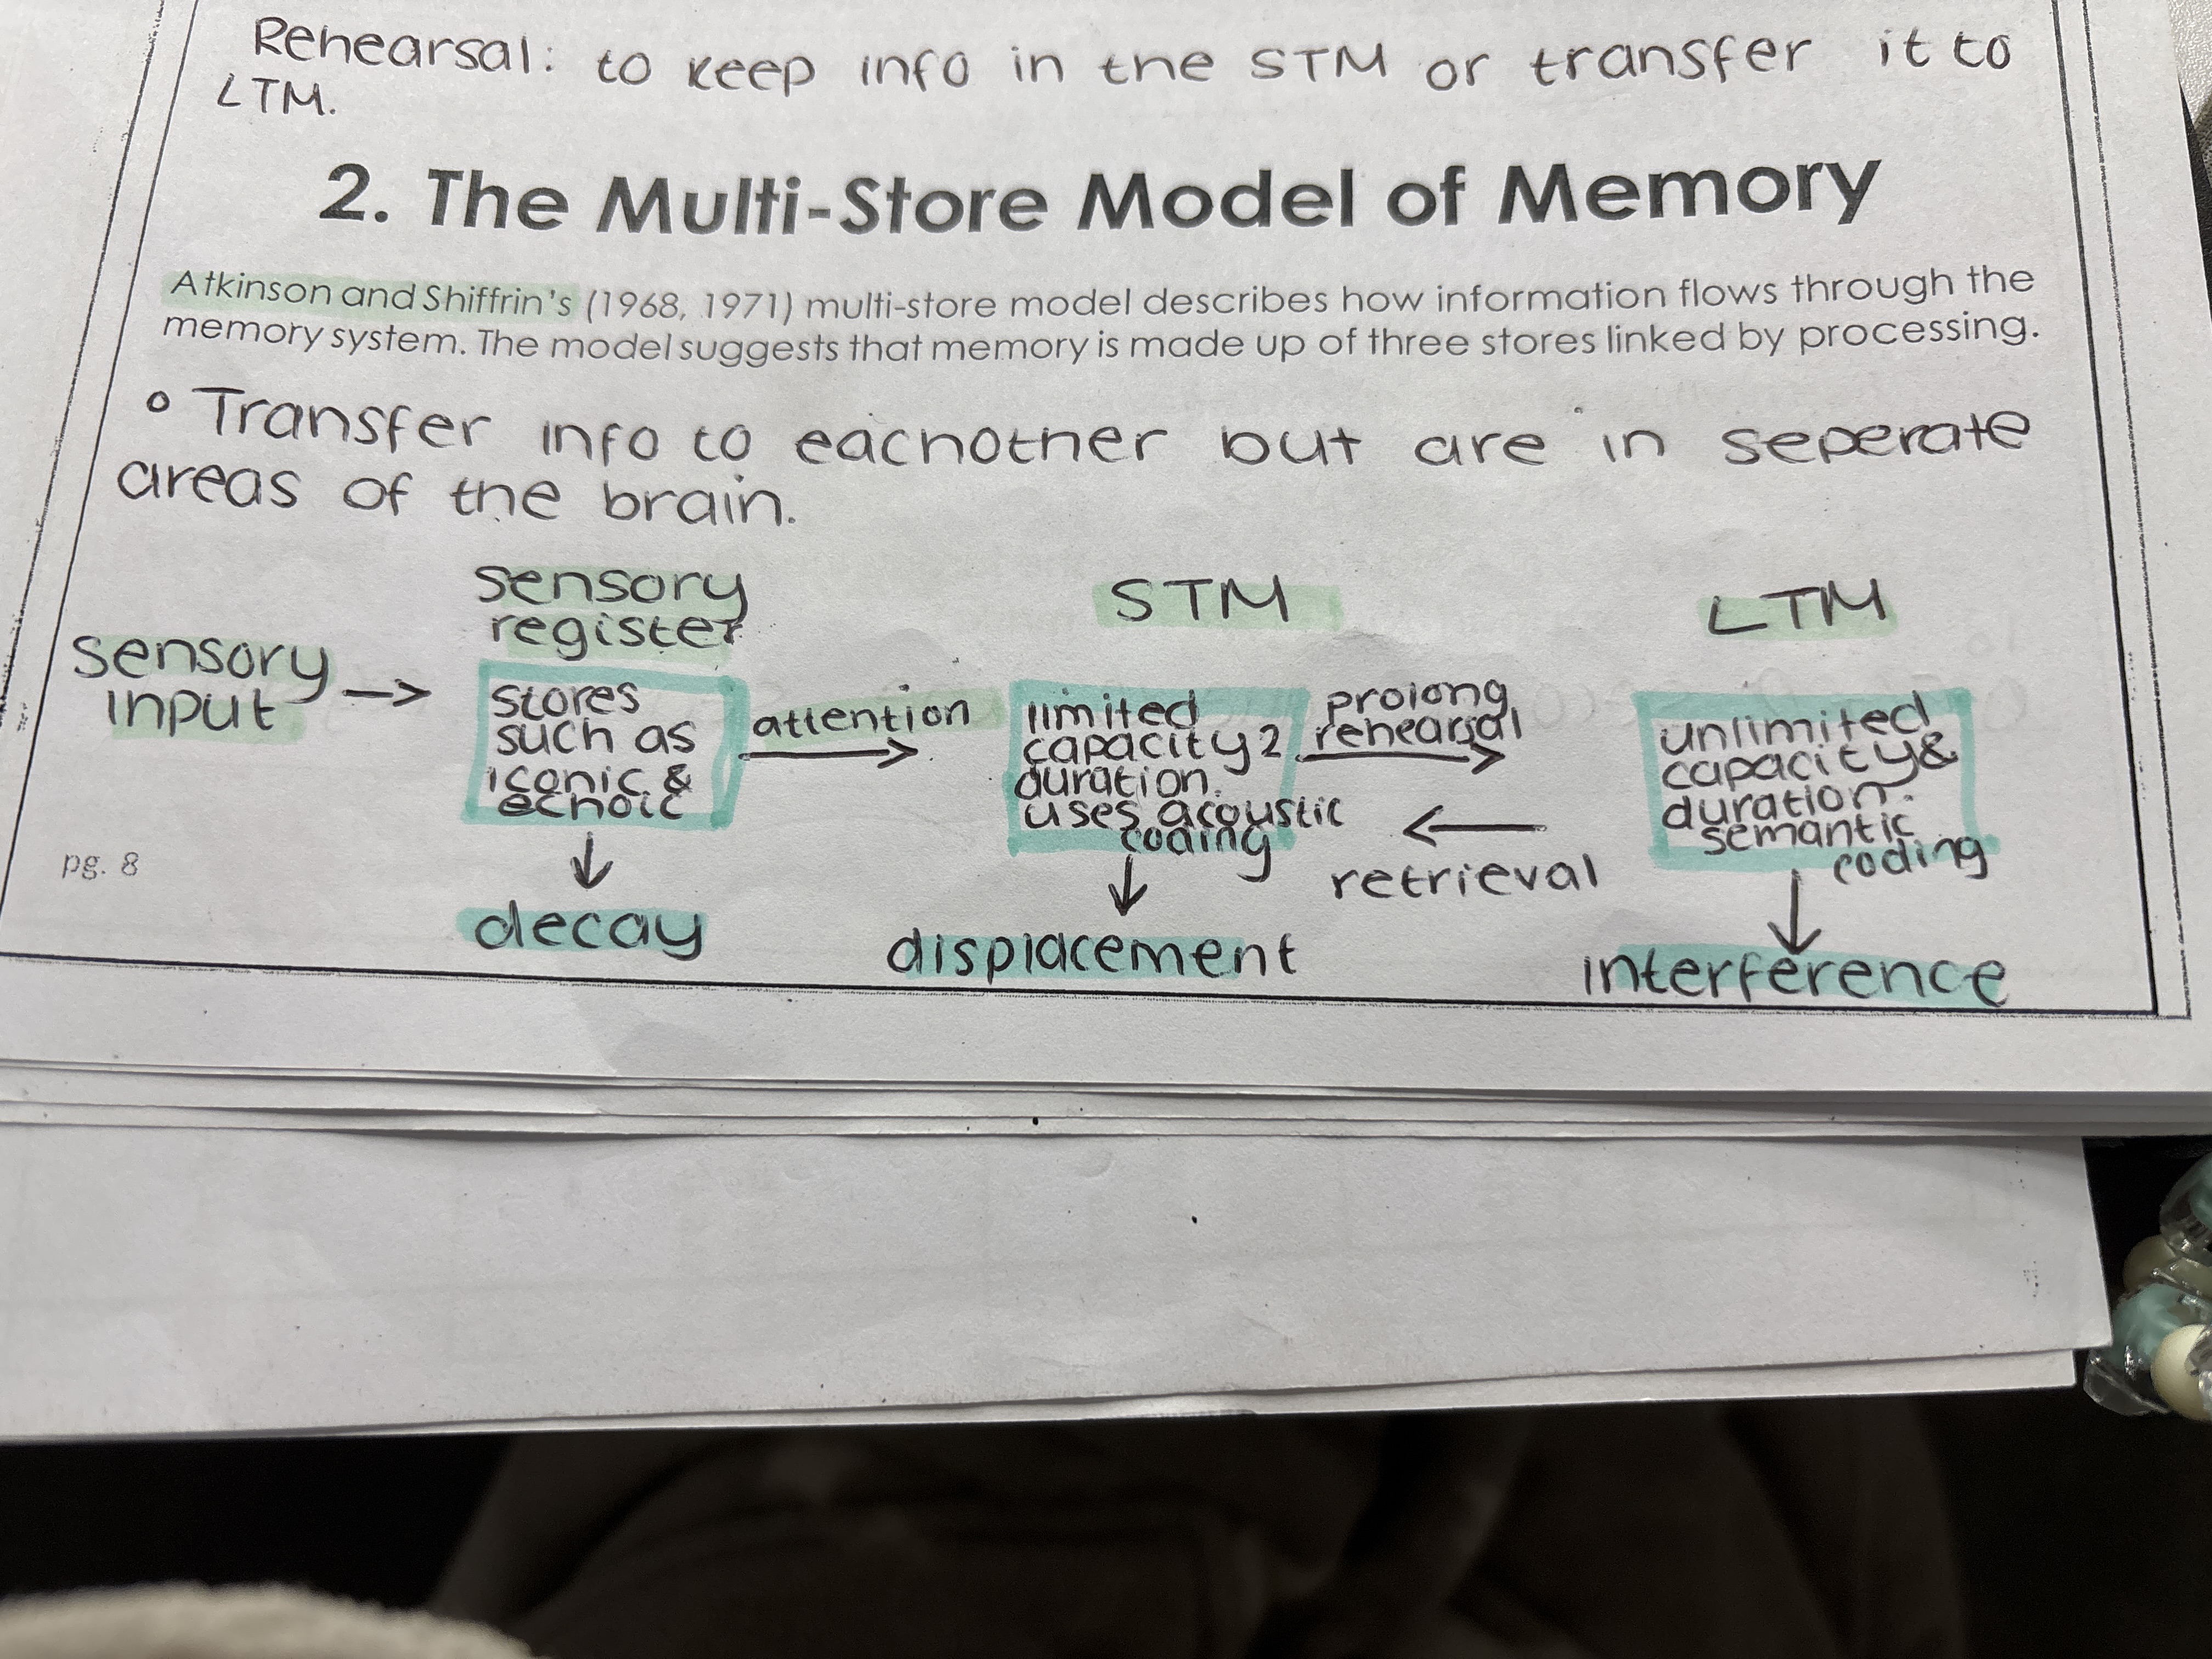 Rehearsal: to keep info in the STM or transfer it to
LTM.
2. The Multi-Store Model of Memory
Atkinson and Shiffrin's (1968, 1971) multi-store model describes how information flows through the
memory system. The model suggests that memory is made up of three stores linked by processing.
° Transfer info to eachother but are in seperate
areas of the brain.
sensory
input →
sensory
register
stores
such as
iconic &
echoic
↓
decay
attention
→
STM
limited
capacity &
duration.
uses acoustic
coding
↓
displacement
prolong
rehearsal
→
←
retrieval
LTM
unlimited
capacity &
duration.
semantic
coding
↓
interference
pg. 8